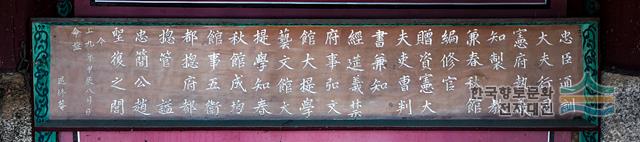 忠臣通訓
大夫行司
憲府執義
知製教
兼春秋館
編修官
贈資憲大
夫吏曹判
書兼知
經筵義禁
府事弘文
館大提學
藝文館大
提學知春
秋館成均
館事五衛
都摠府都
摠管 謚
忠簡公趙
聖復之閭
今
上九年 辰八月日
命旌
한국향토문화
전자대전